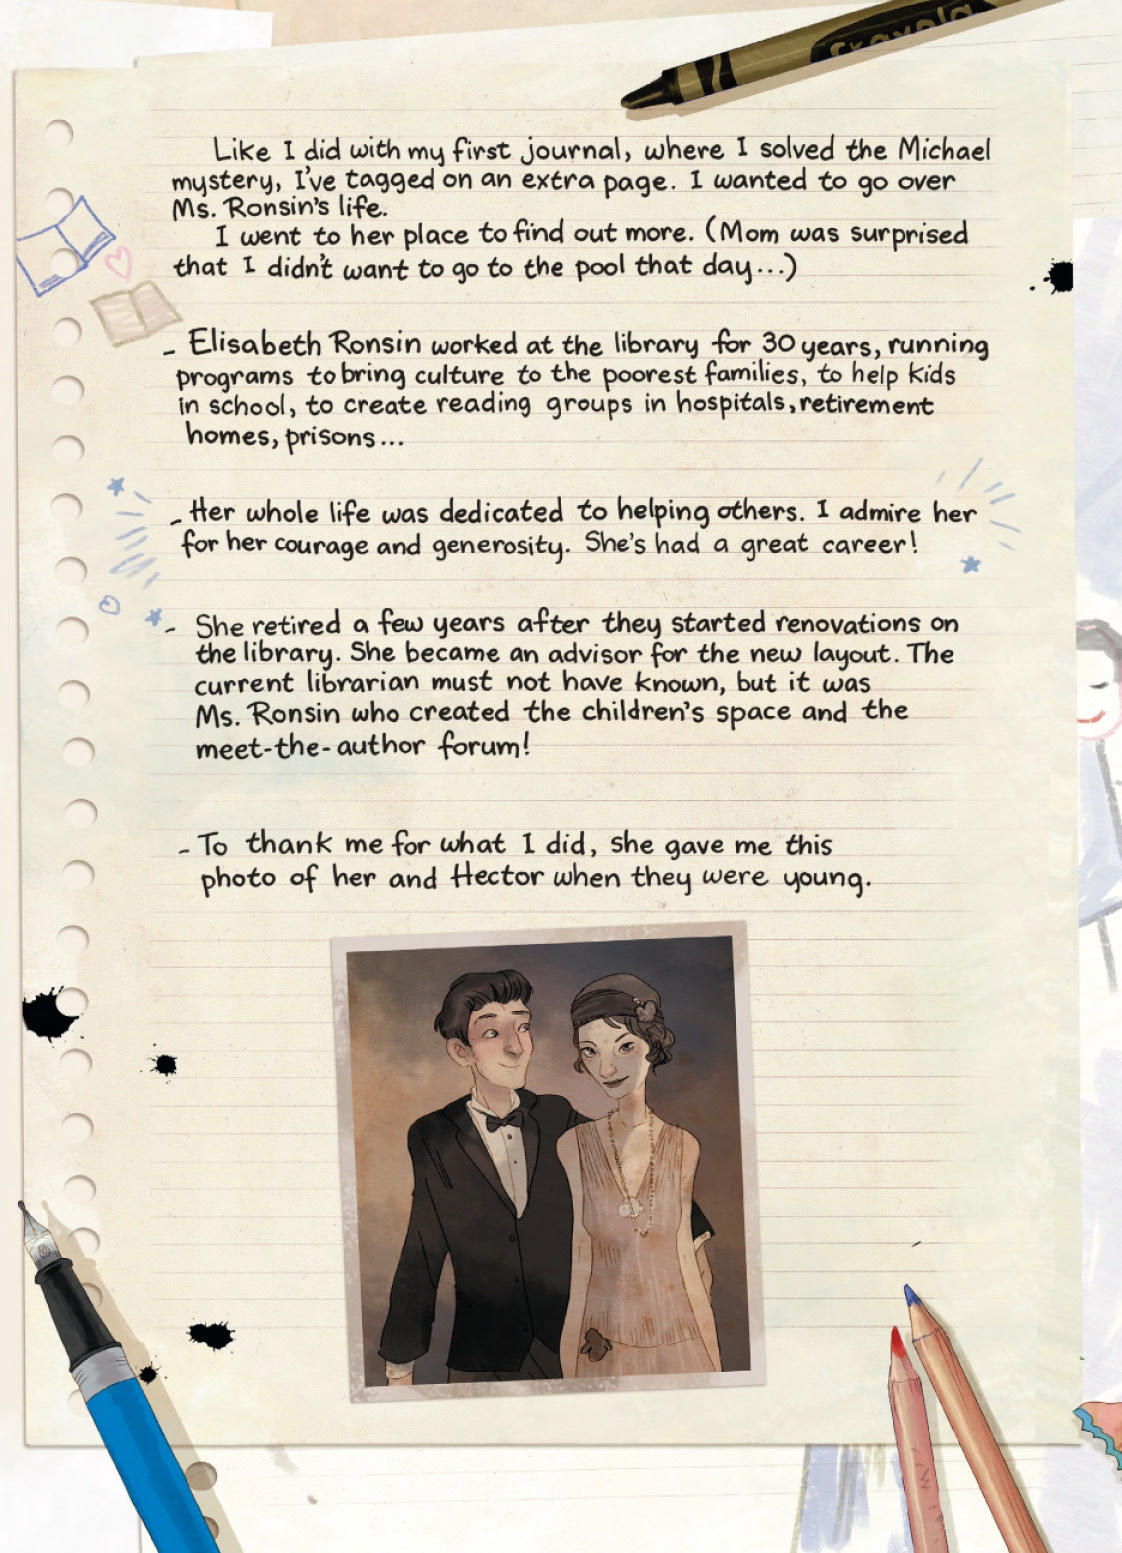 Crayola
Like I did with my first journal, where I solved the Michael
mystery, I've tagged on an extra page. I wanted to go over
Ms. Ronsin's life.
I went to her place to find out more. (Mom was surprised
that I didn't want to go to the pool that day...)
- Elisabeth Ronsin worked at the library for 30 years, running
programs to bring culture to the poorest families, to help kids
in school, to create reading groups in hospitals, retirement
homes, prisons...
- Her whole life was dedicated to helping others. I admire her
for her courage and generosity. She's had a great career!
- She retired a few years after they started renovations on
the library. She became an advisor for the new layout. The
current librarian must not have known, but it was
Ms. Ronsin who created the children's space and the
meet-the-author forum!
- To thank me for what I did, she gave me this
photo of her and Hector when they were young.